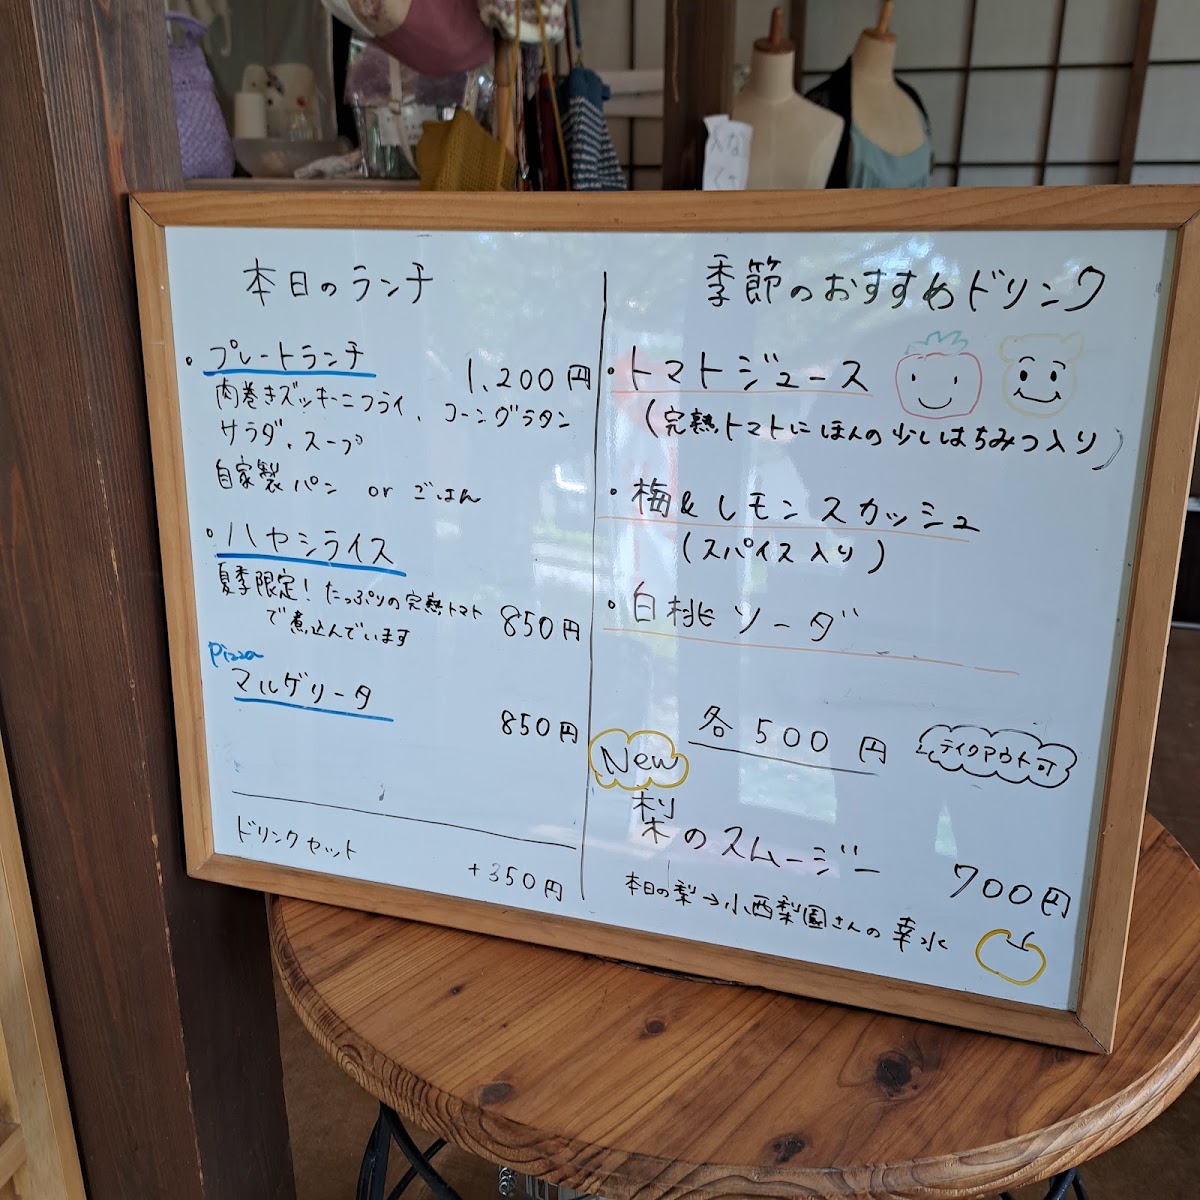 本日のランチ
・プレートランチ
1,200円
肉巻きズッキーニフライ、コーングラタン
サラダ、スープ
自家製パン or ごはん
・ハヤシライス
夏季限定! たっぷりの完熟トマト
で煮込んでいます
850円
Pizza
マルゲリータ
850円
ドリンクセット
+350円
季節のおすすめドリンク
・トマトジュース
(完熟トマトにほんの少しはちみつ入り)
・梅&レモンスカッシュ
(スパイス入り)
・白桃ソーダ
各500円
テイクアウト可
New
梨のスムージー
700円
本日の梨→小西梨園さんの幸水